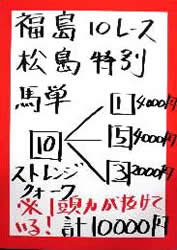 福島10レース
松島特別
馬単
1 4000円
10
5 4000円
3 2000円
ストレンジ
クォーク
※1頭力が抜けて
いる! 計10000円